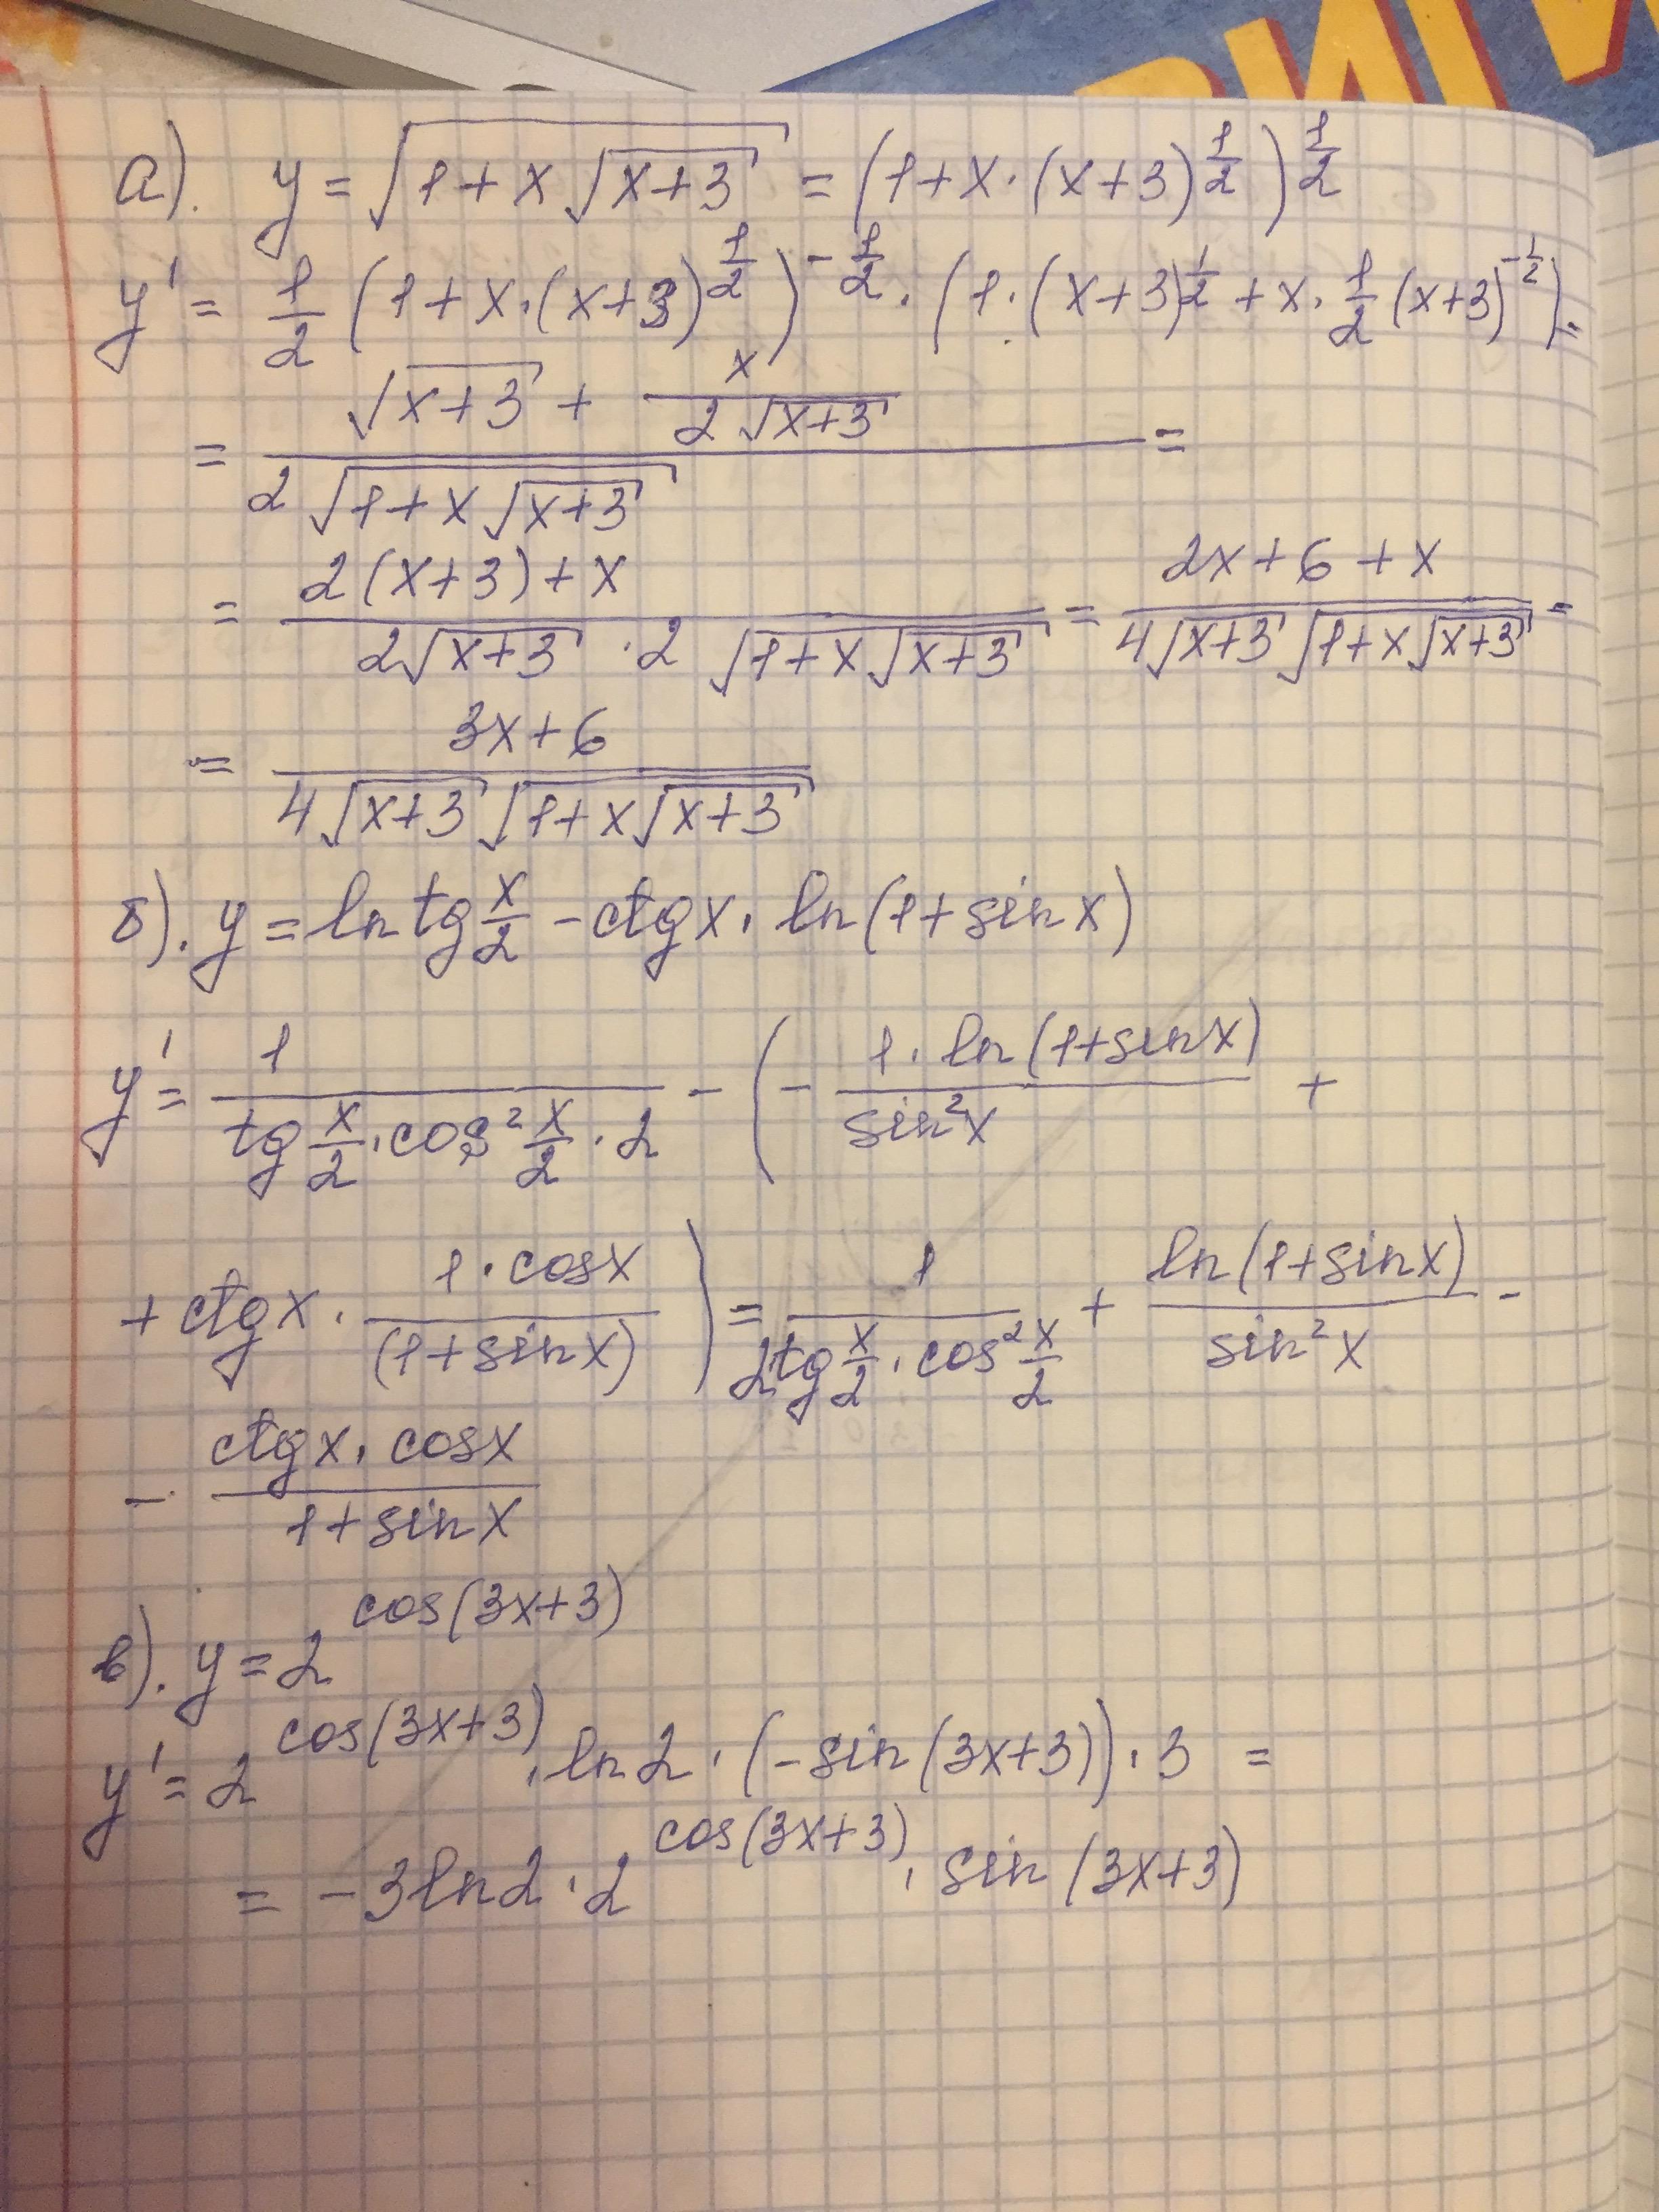 а). y = √(1+x√(x+3)) = (1+x·(x+3)^(1/2))^(1/2)
y' = 1/2 (1+x·(x+3)^(1/2))^(-1/2) · (1·(x+3)^(1/2) + x·1/2 (x+3)^(-1/2)) =
= (√(x+3) + x/(2√(x+3)))/(2√(1+x√(x+3))) =
= (2(x+3)+x)/(2√(x+3) · 2√(1+x√(x+3))) = (2x+6+x)/(4√(x+3)√(1+x√(x+3))) =
= (3x+6)/(4√(x+3)√(1+x√(x+3)))
б). y = ln tg x/2 - ctg x · ln(1+sin x)
y' = 1/(tg x/2 · cos² x/2 · 2) - (- (1·ln(1+sin x))/(sin² x) +
+ ctg x · (1·cos x)/((1+sin x))) = 1/(2tg x/2 · cos² x/2) + (ln(1+sin x))/(sin² x) -
- (ctg x · cos x)/(1+sin x)
в). y = 2^(cos(3x+3))
y' = 2^(cos(3x+3)) · ln 2 · (-sin(3x+3)) · 3 =
= -3 ln 2 · 2^(cos(3x+3)) · sin (3x+3)